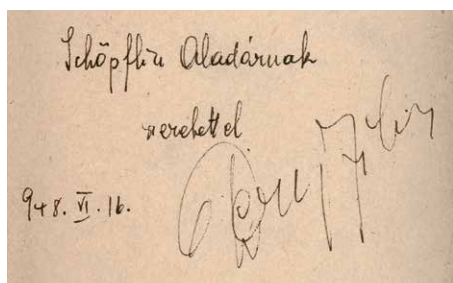 Schöpflin Aladárnak
szeretettel
948. VI. 16.